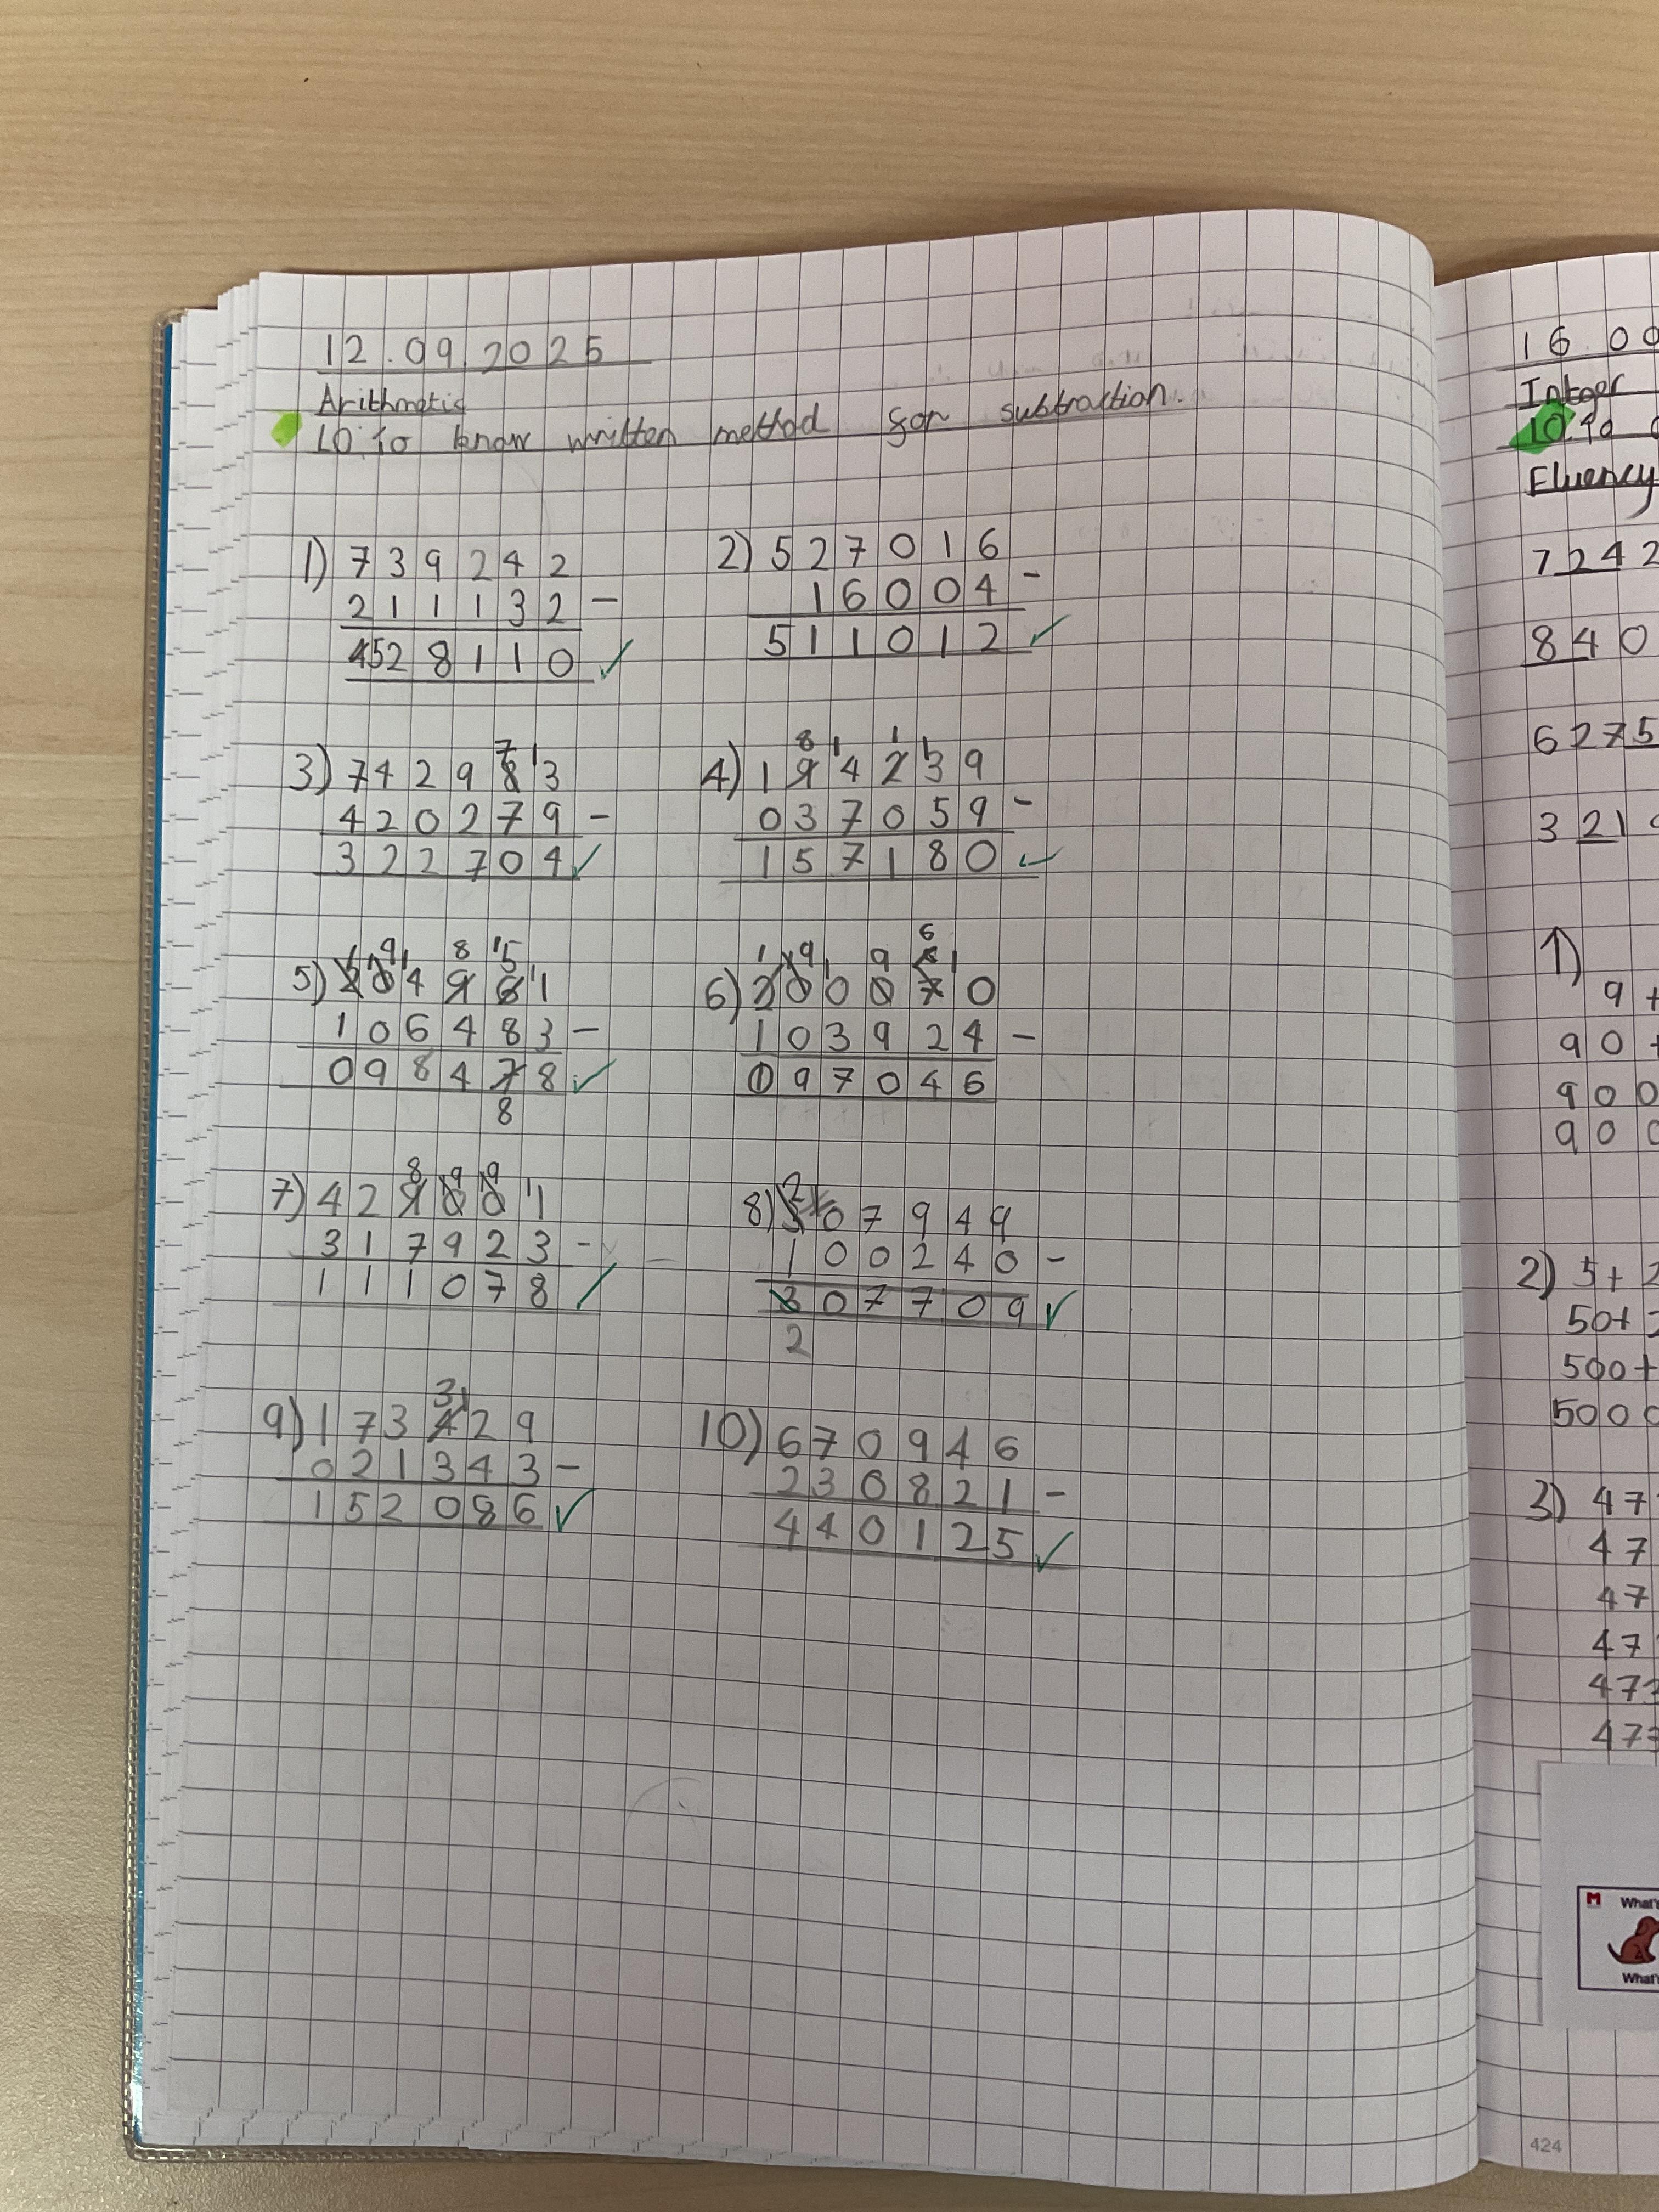 12.09.2025
Arithmetic
LO: to know written method for subtraction.
1) 739242
211132 -
528110 ✓
2) 527016
16004 -
511012 ✓
3) 742983
420279 -
322704 ✓
4) 194239
037059 -
157180 ✓
5) 204961
106483 -
098478 ✓
8
6) 200070
103924 -
097046
7) 429001
317923 -
111078 ✓
8) 307949
100240 -
307709 ✓
2
9) 173429
021343 -
152086 ✓
10) 670946
230821 -
440125 ✓
16 00
Integer
LO: to
Fluency
7242
840
6275
321
1)
9 +
90 +
900
900
2) 5 + 2
50 + 2
500 +
5000
3) 47
47
47
47
473
473
M What's
What's
424